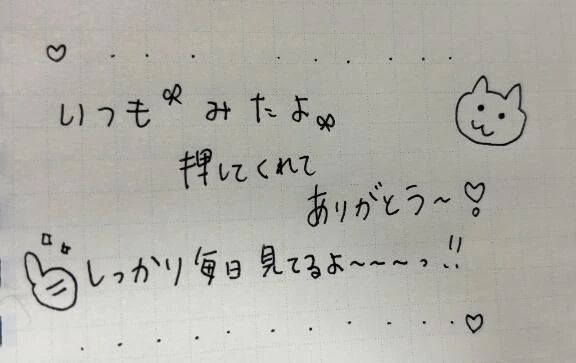 いつも みたよ
押してくれて
ありがとう～♡
しっかり毎日見てるよ～～～っ!!